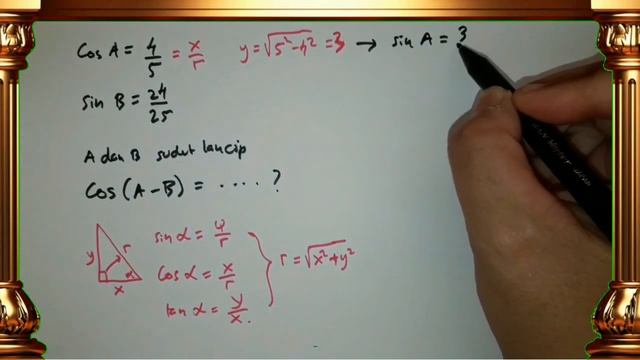 cos A = 4/5 = x/r   y = √(5²-4²) = 3 → sin A = 3
sin B = 24/25
A dan B sudut lancip
cos (A-B) = .....?
y r x α
sin α = y/r
cos α = x/r
tan α = y/x.
r = √(x²+y²)